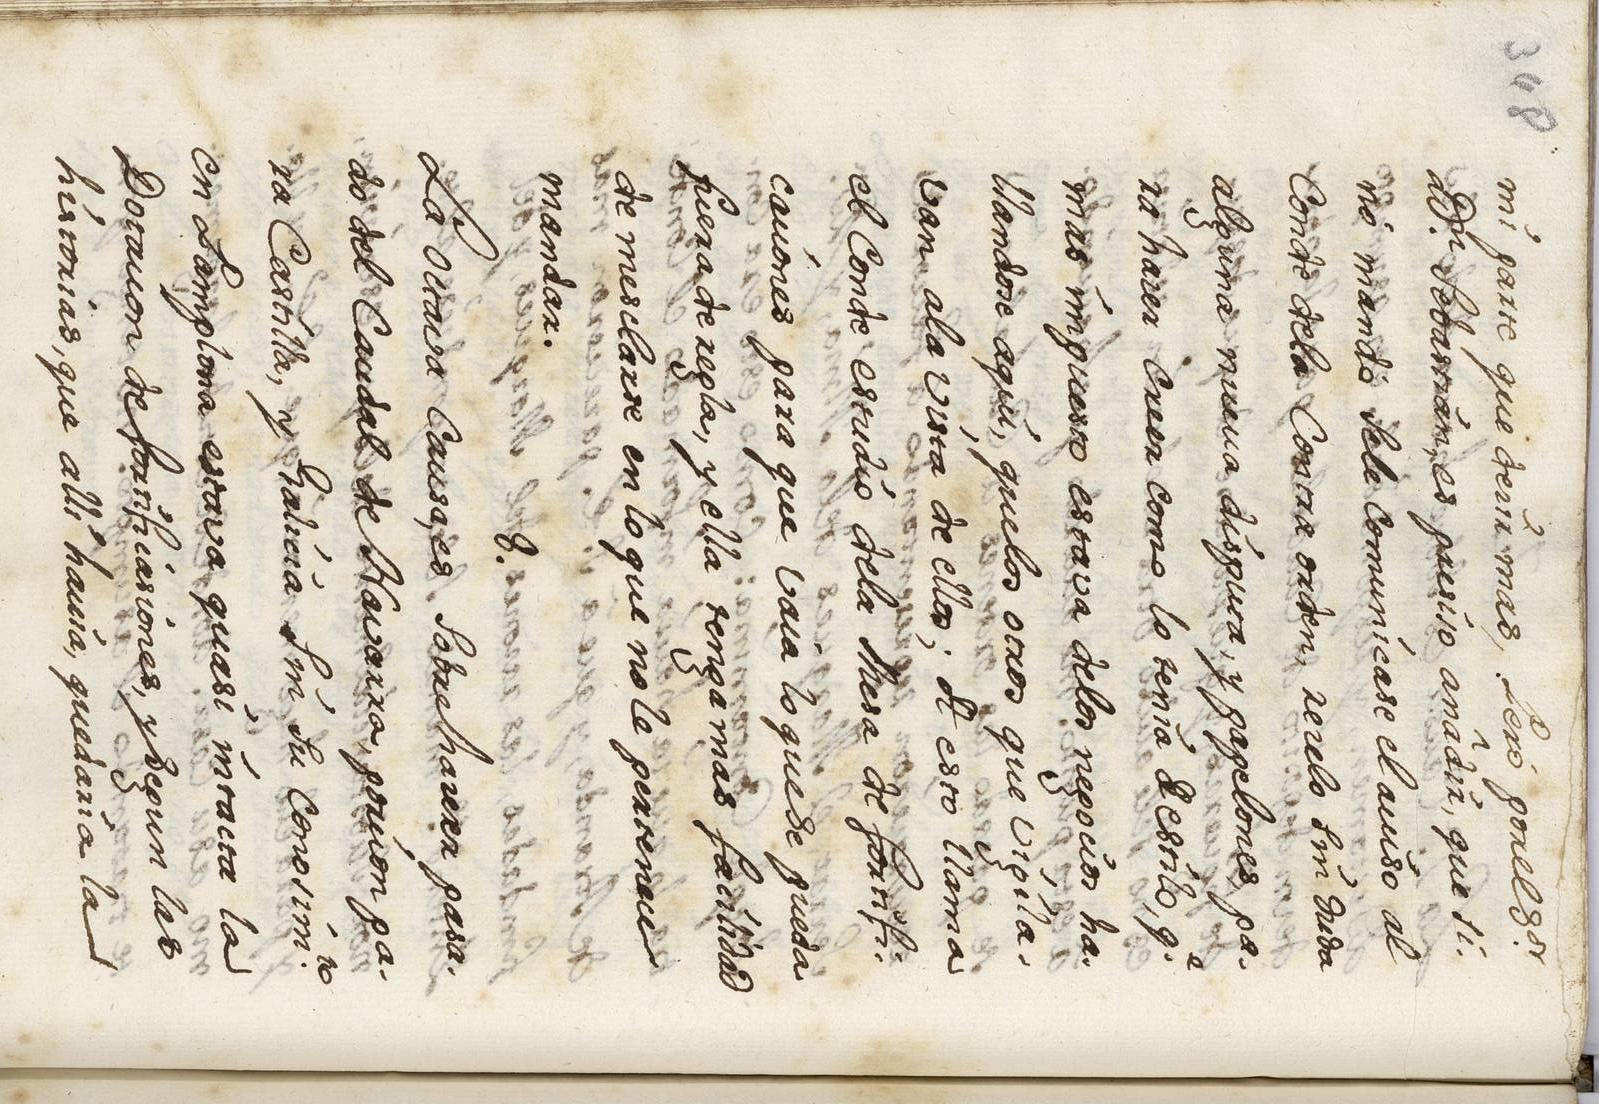 308
mi parte que decir mas, Pero por el S.or
D.n Sebastián, es preciso añadir, que si
no mandó Se le Comunicase el auiso al
Conde dela Corzana orden, rezelo Sin duda
alguna nueua disputa, y papelones, pa-
ra hazer Creer como lo tenia de estilo, q.e
mas ingreso estaua delos negocios ha-
llandose aqui, quelos otros que vigila-
van ala vista de ellos; A esto llama
el Conde estudio dela Mesa de fortifi-
caciónes para que vaia lo que se pueda
fuera de regla, y ella tenga mas facilidad
de mesclarse en lo que no le pertenece
mandar.
8.
La Octaua Causa, es Sobre hauerse pasa-
do del Caudal de Nauarra, porcion pa-
ra Castilla, y Galicia Sin Su Conosim.to
en Pamplona estaua quasi intacta la
Dotacion de fortificasiones, y Segun las
historias, que alli hauia, quedaria la